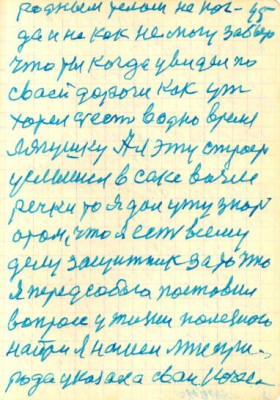 родным телом на ног- 45
да и не как не могу забыть
что ты когда увидел по
своей дороги как уж
хотел съесть в одно время
лягушку А я эту
услышал в саке возле
речки то я дал ужу знать
о том, что я есть всему
делу защитник за то что
я перед собою поставил
вопрос у жизни полезного
найти я нашел мне при-
рода указала свои